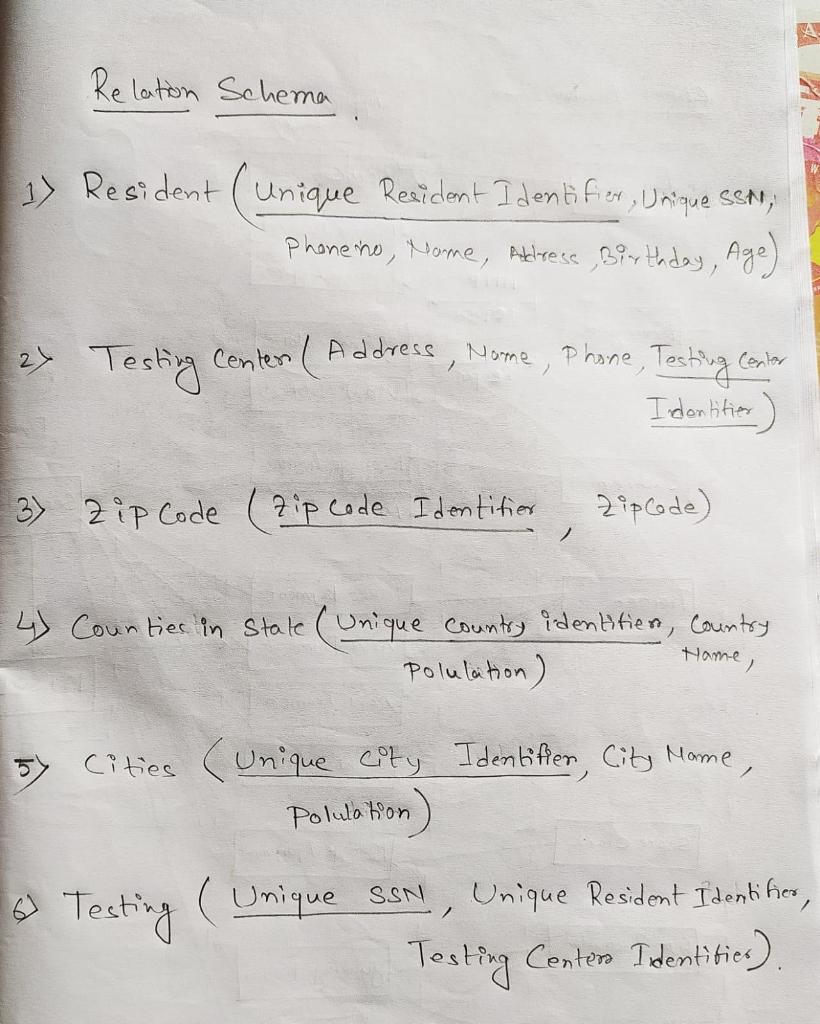 Relation Schema.
1) Resident (Unique Resident Identifier, Unique SSN,
Phone no, Name, Address, Birthday, Age)
2) Testing Center (Address, Name, Phone, Testing Center
Identifier)
3) Zip Code (Zip Code Identifier, Zipcode)
4) Counties in State (Unique Country identifier, Country
Name,
Polulation)
5) Cities (Unique City Identifier, City Name,
Polulation)
6) Testing (Unique SSN, Unique Resident Identifier,
Testing Centers Identifier).